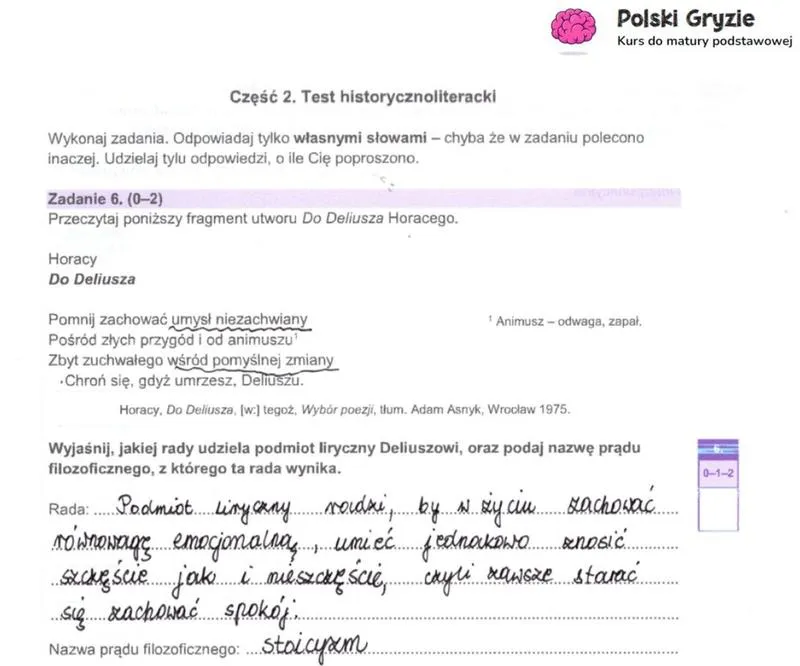 Polski Gryzie
Kurs do matury podstawowej
Część 2. Test historycznoliteracki
Wykonaj zadania. Odpowiadaj tylko własnymi słowami – chyba że w zadaniu polecono
inaczej. Udzielaj tylu odpowiedzi, o ile Cię poproszono.
Zadanie 6. (0–2)
Przeczytaj poniższy fragment utworu Do Deliusza Horacego.
Horacy
Do Deliusza
Pomnij zachować umysł niezachwiany
Pośród złych przygód i od animuszu¹
Zbyt zuchwałego wśród pomyślnej zmiany
Chroń się, gdyż umrzesz, Deliuszu.
¹ Animusz – odwaga, zapał.
Horacy, Do Deliusza, [w:] tegoż, Wybór poezji, tłum. Adam Asnyk, Wrocław 1975.
Wyjaśnij, jakiej rady udziela podmiot liryczny Deliuszowi, oraz podaj nazwę prądu
filozoficznego, z którego ta rada wynika.
6.
0–1–2
Rada: Podmiot liryczny radzi, by w życiu zachować
równowagę emocjonalną, umieć jednakowo znosić
szczęście jak i nieszczęście, czyli zawsze starać
się zachować spokój.
Nazwa prądu filozoficznego: stoicyzm